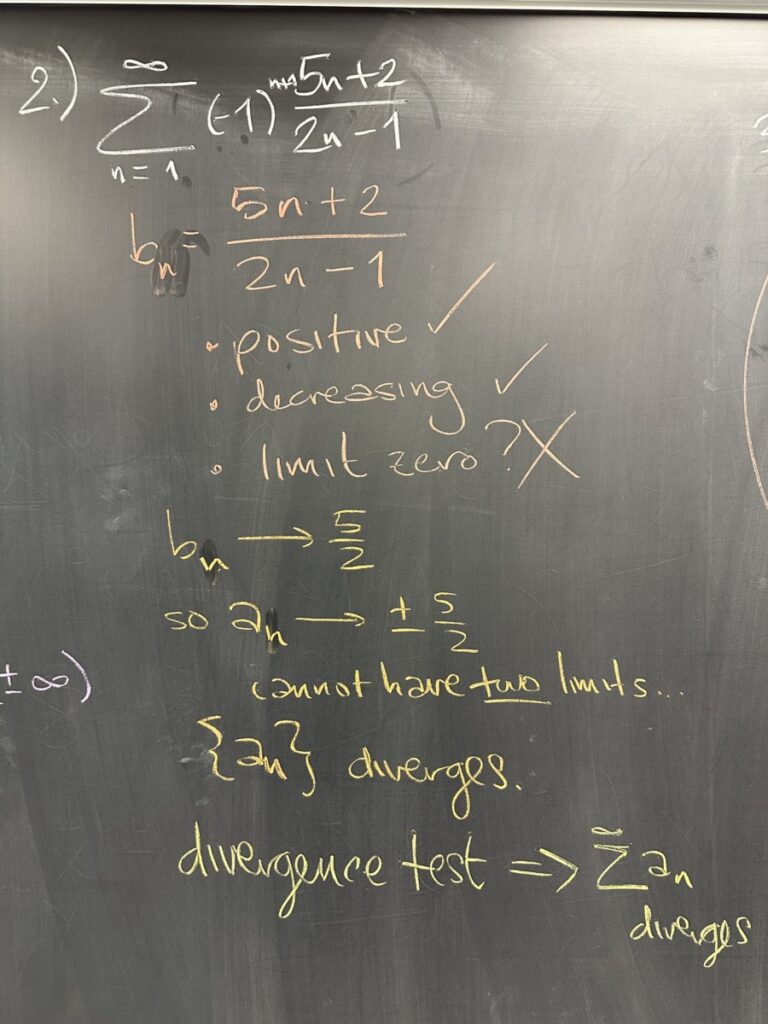 2.) ∞ ∑ n = 1 (-1)ⁿ⁺¹ 5n+2 / 2n-1
bₙ = 5n+2 / 2n-1
• positive ✓
• decreasing ✓
• limit zero ? X
bₙ → 5/2
so aₙ → ± 5/2
± ∞)
cannot have two limits...
{aₙ} diverges.
divergence test => ∞ ∑ aₙ
diverges